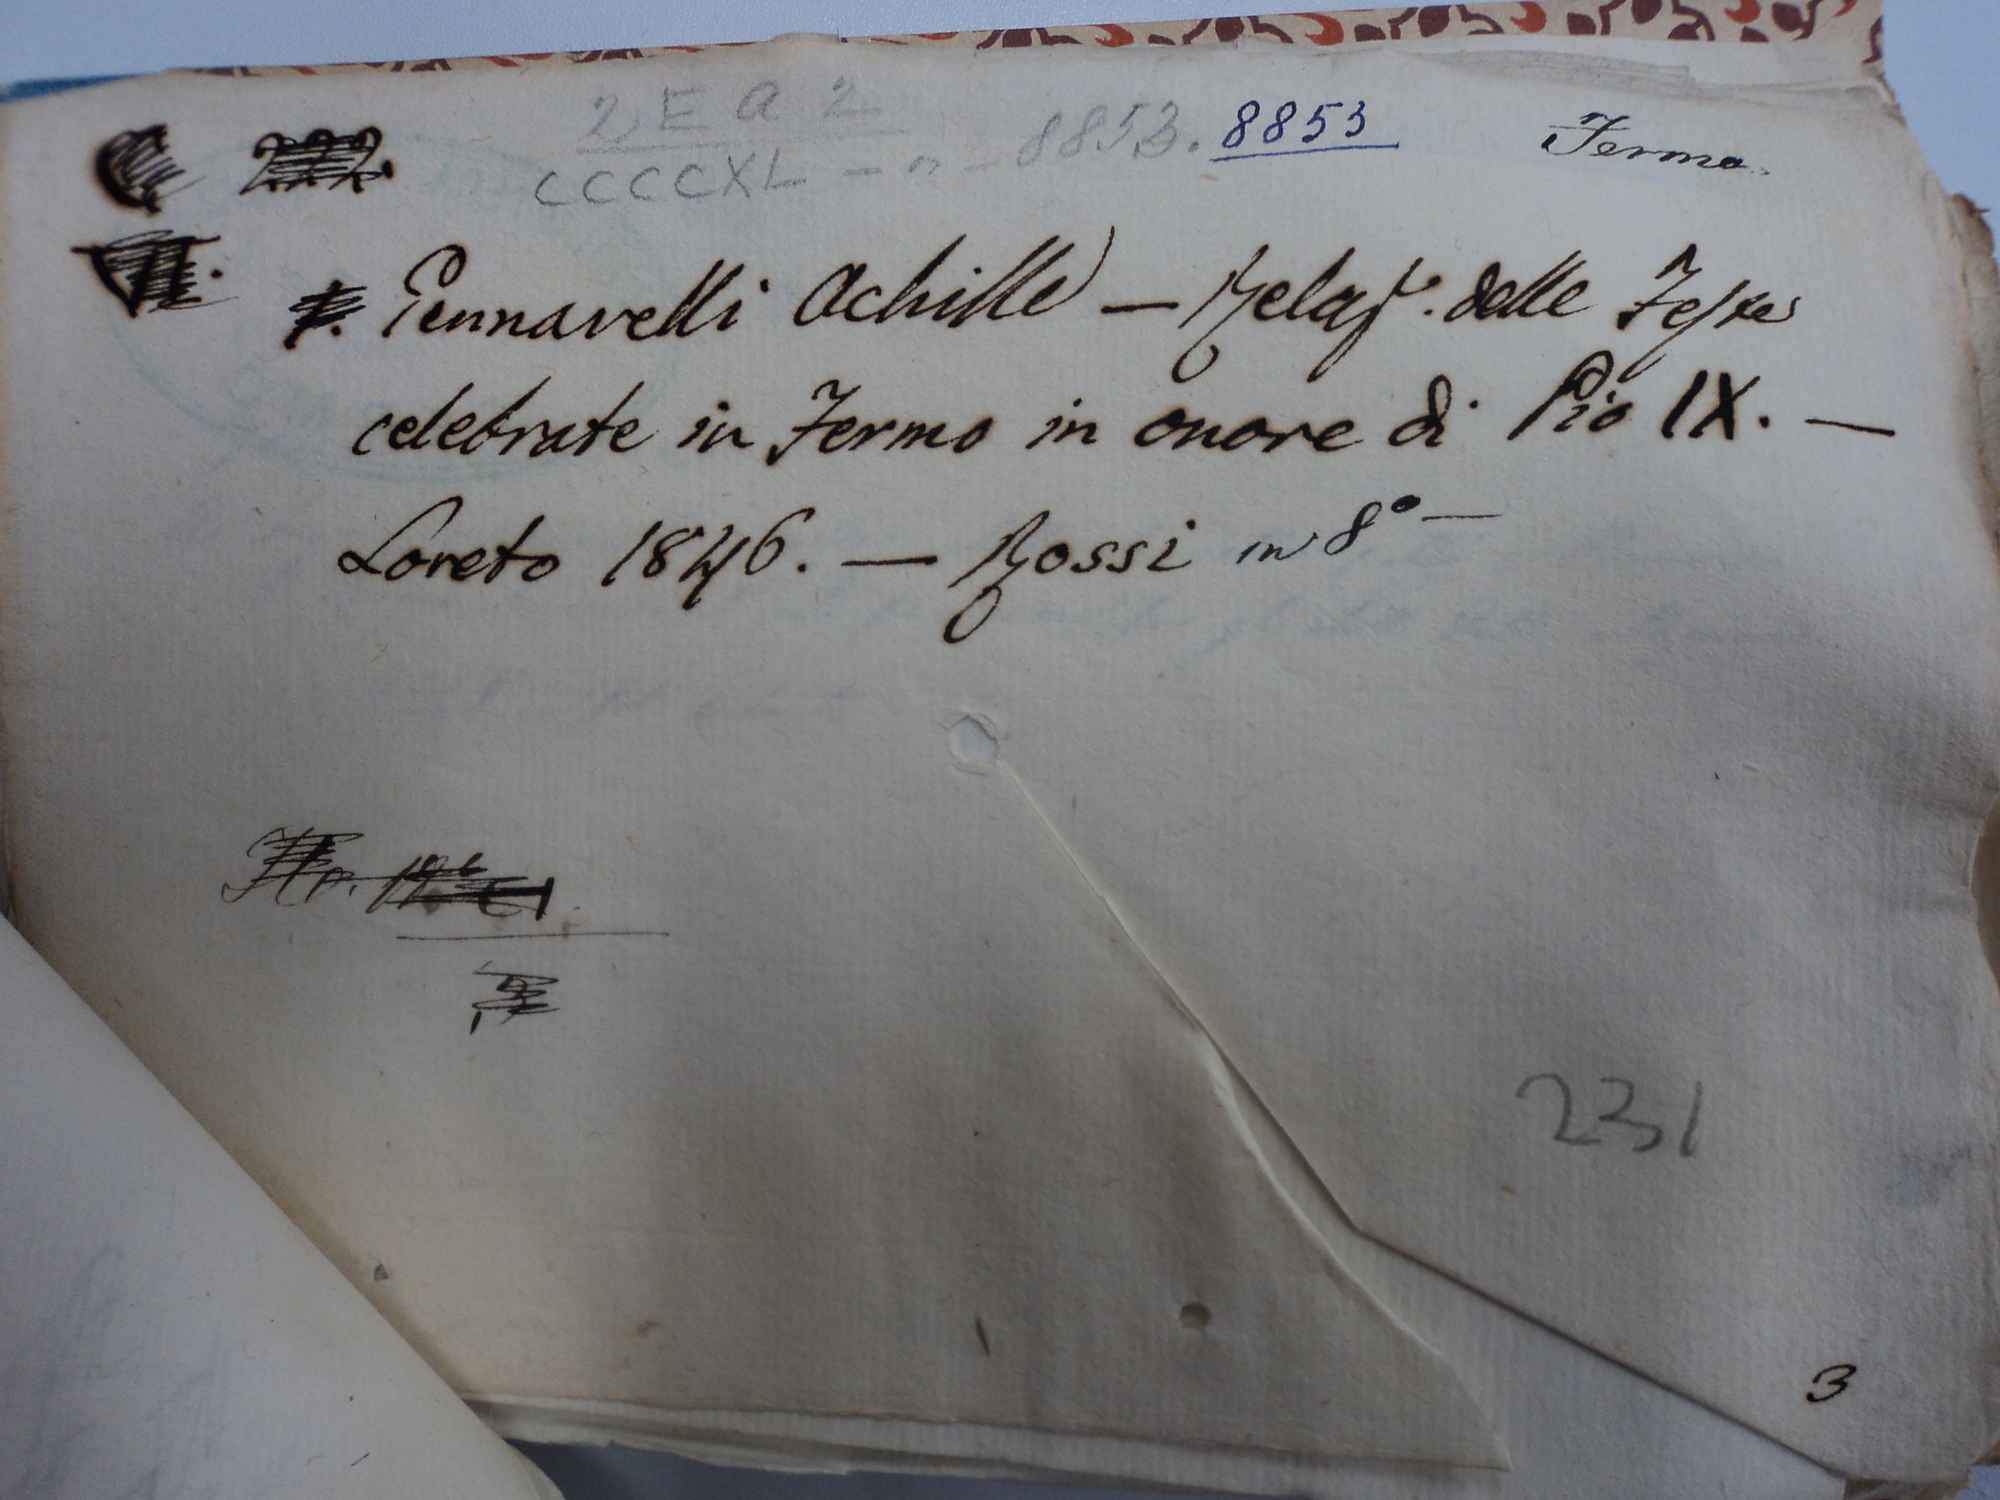 2 E a 2
CCCCXL - n - 8853. 8853 Fermo.
Gennarelli Achille — Relaz. delle Feste
celebrate in Fermo in onore di Pio IX. —
Loreto 1846. — Rossi in 8° —
231
3